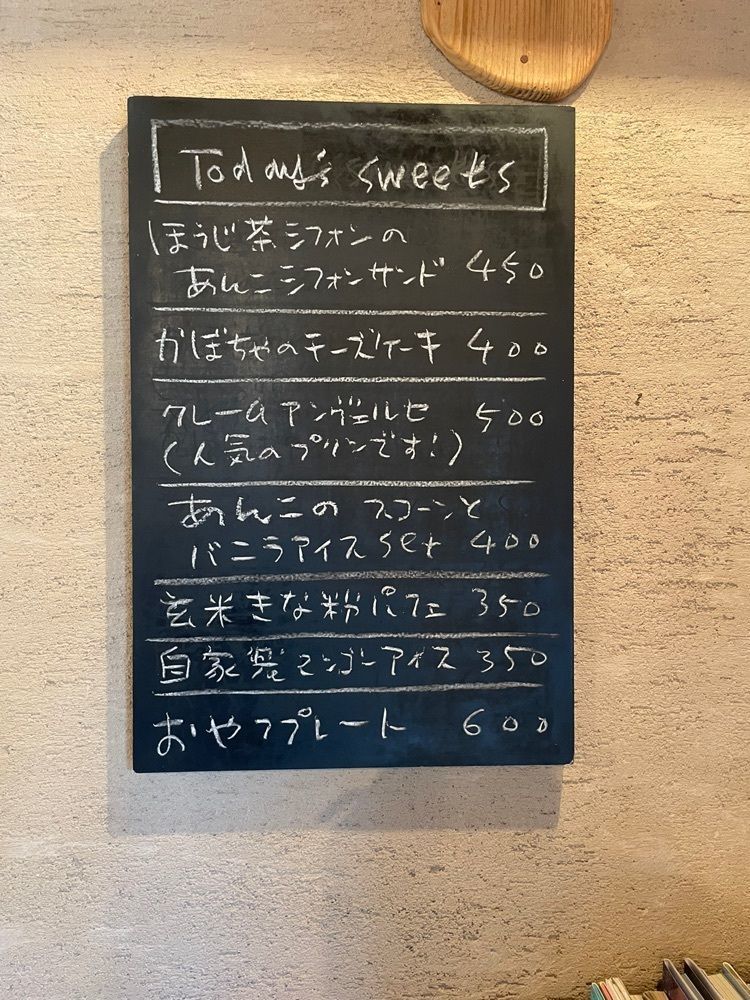 Today's sweets
ほうじ茶シフォンの
あんこシフォンサンド 450
かぼちゃのチーズケーキ 400
クレームアンヴェルセ 500
(人気のプリンです!)
あんこのスコーンと
バニラアイスset 400
玄米きな粉パフェ 350
自家製マンゴーアイス 350
おやつプレート 600